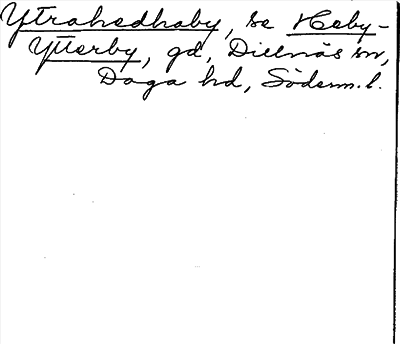 Ytrahedhaby, se Heby-
Ytterby, gd, Dillnäs sn,
Daga hd, Söderm. l.